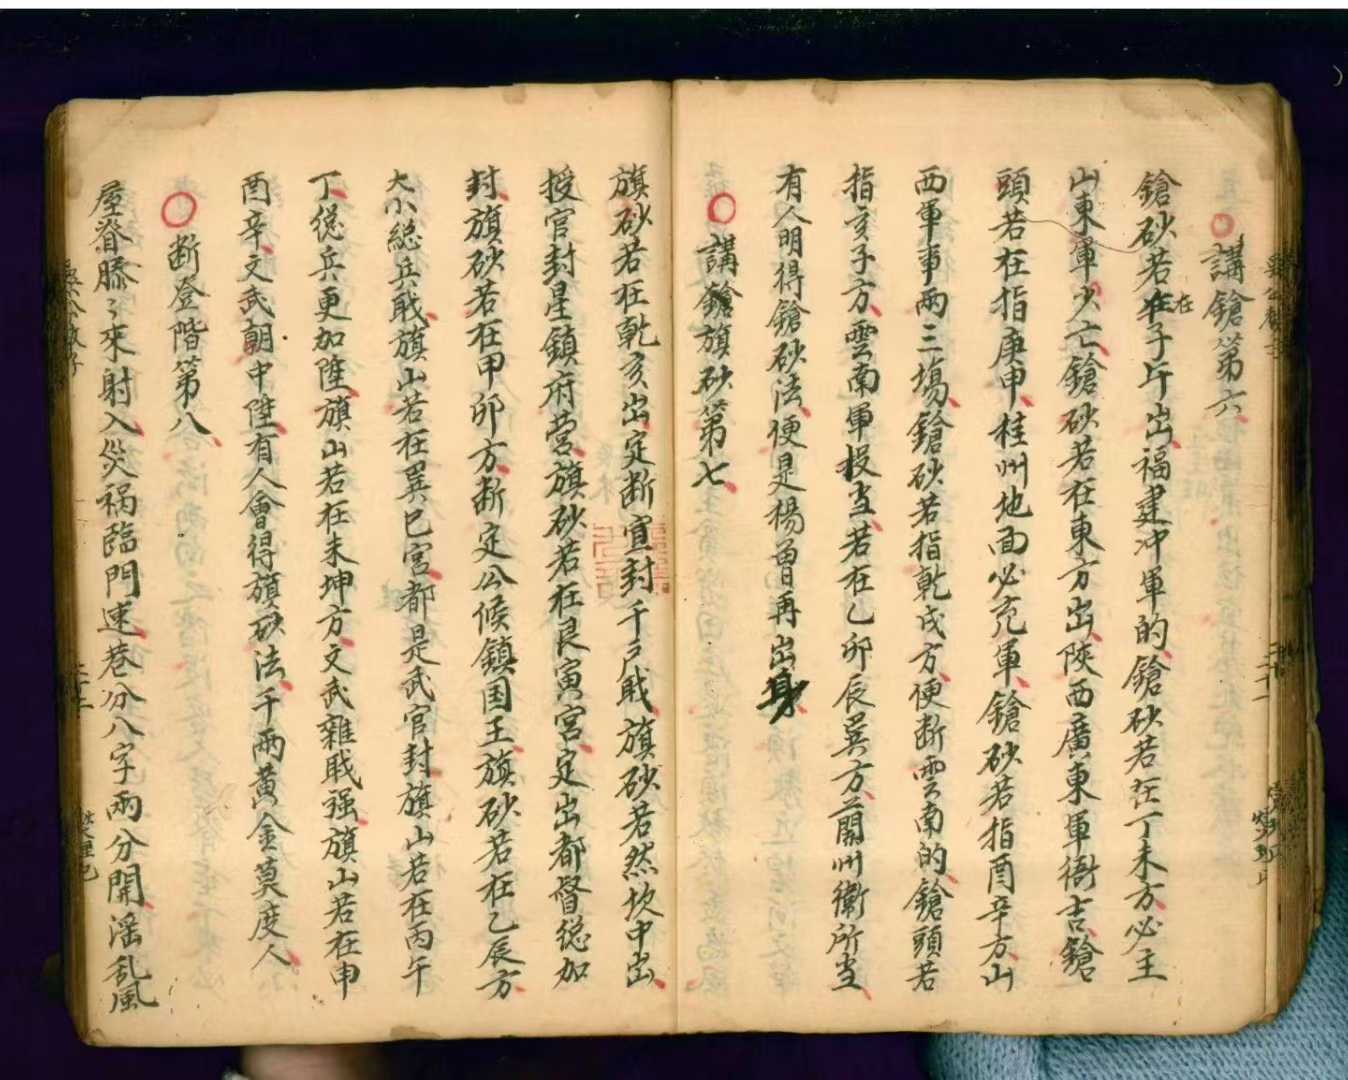 ○講鎗第六
鎗砂若在子斤出福建冲軍的鎗砂若在丁未方必主
山東軍少亡鎗砂若在東方出陝西廣東軍衙去鎗
頭若在指庚申桂州地面必充軍鎗砂若指酉辛方山
西軍事兩三塲鎗砂若指乾戌方便断雲南的鎗頭若
指亥子方雲南軍授当若在乙卯辰巽方蘭州衛所当
有人明得鎗砂法便是楊曽再出身
○講鎗旗砂第七
旗砂若在乾亥出定断宣封千户戝旗砂若然坎中出
授官封星鎮府营旗砂若在艮寅宫定出都督縂加
封旗砂若在甲卯方断定公候鎮国王旗砂若在乙辰方
大小縂兵戝旗山若在巽巳宮都是武官封旗山若在丙午
丁縂兵更加陞旗山若在未坤方文武雜戝强旗山若在申
酉辛文武朝中陞有人會得旗砂法千兩黄金莫度人
○断登階第八
屋脊滕〻來射入災禍臨門速巷分八字兩分開滛乱風